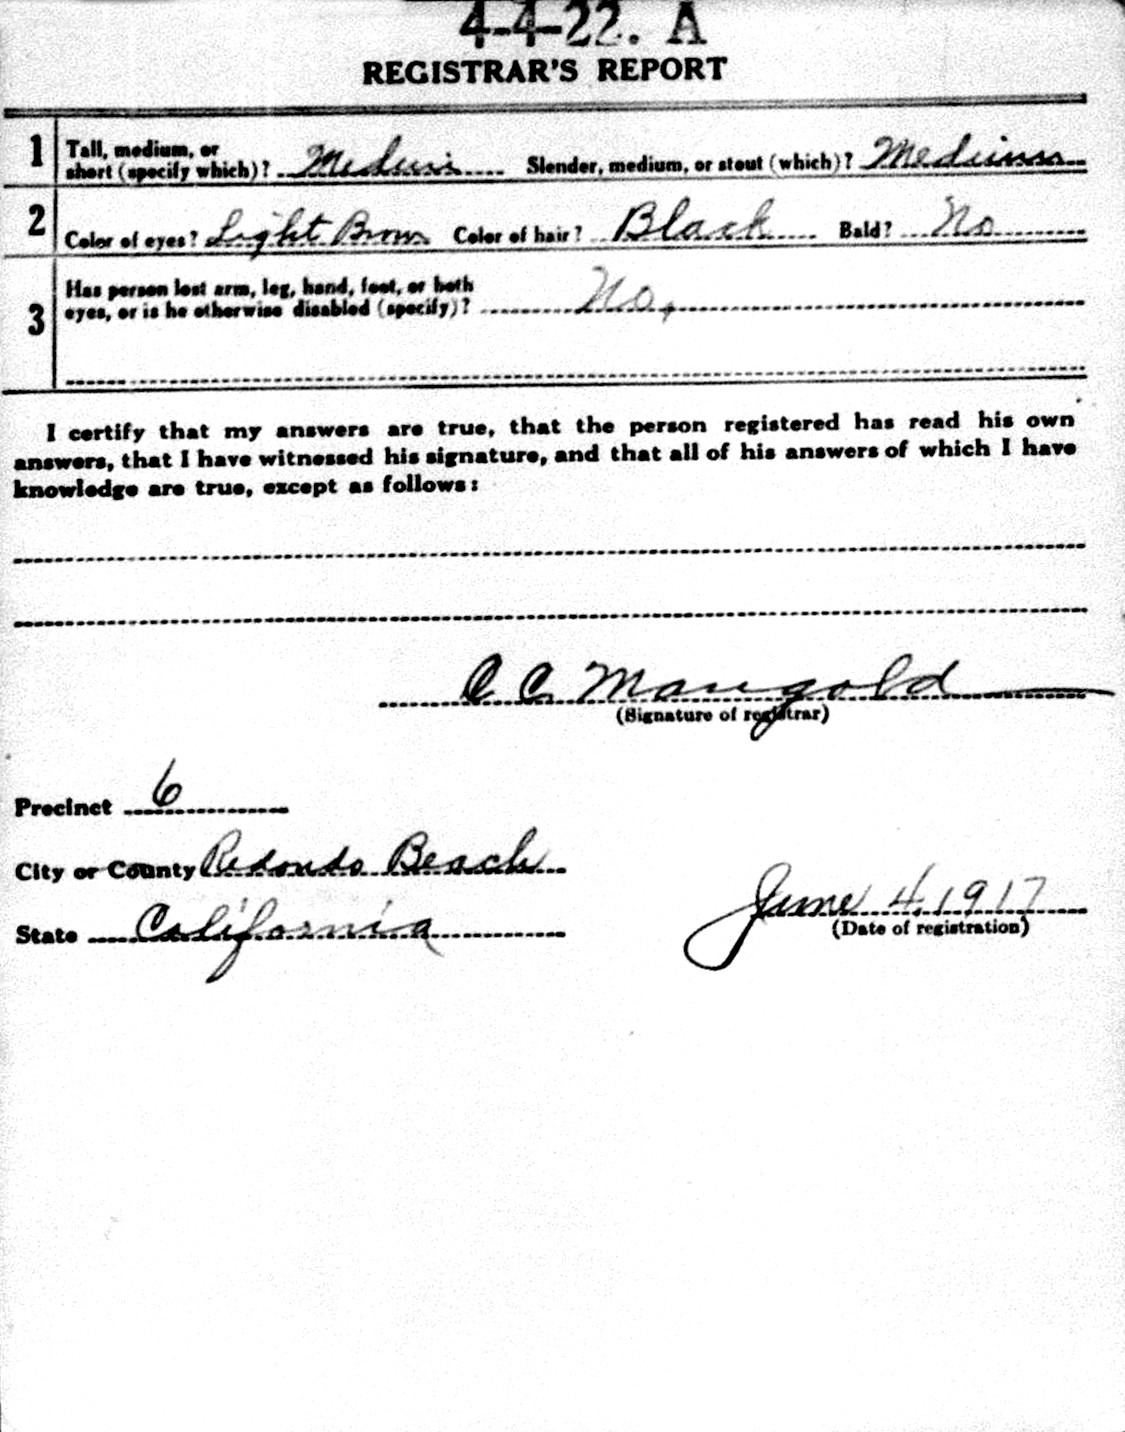 4-4-22. A
REGISTRAR'S REPORT
1 Tall, medium, or short (specify which)? Medium Slender, medium, or stout (which)? Medium
2 Color of eyes? Light Brown Color of hair? Black Bald? No
3 Has person lost arm, leg, hand, foot, or both
eyes, or is he otherwise disabled (specify)? No.
I certify that my answers are true, that the person registered has read his own
answers, that I have witnessed his signature, and that all of his answers of which I have
knowledge are true, except as follows:
C C Mangold
(Signature of registrar)
Precinct 6
City or County Redondo Beach
State California
June 4, 1917
(Date of registration)